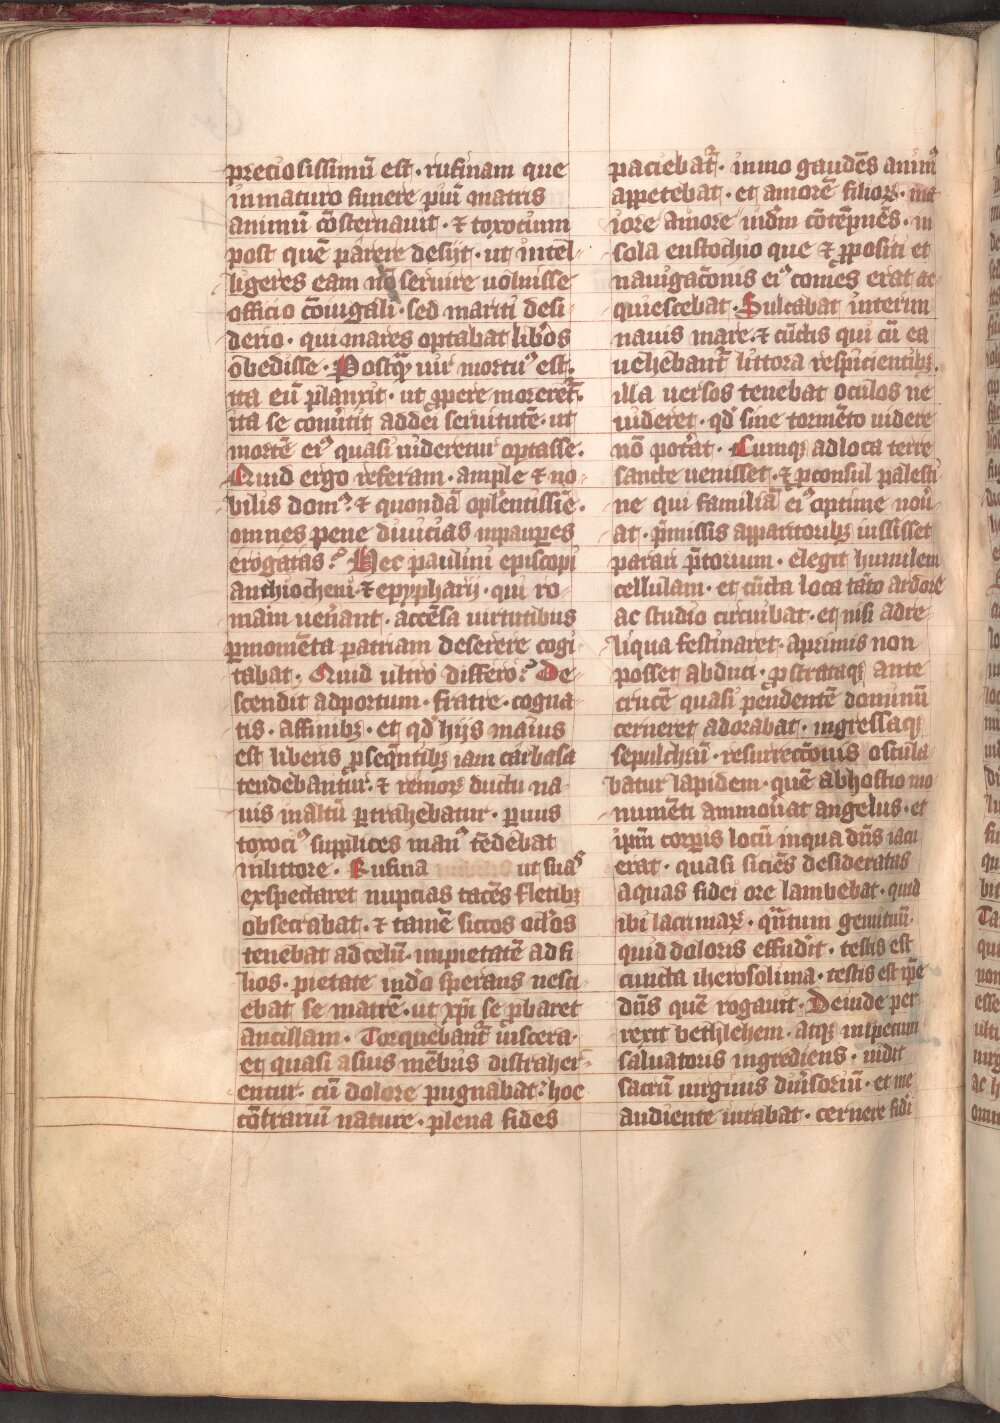 preciosissimū est · rufinam que
inmaturo funere piuͫ matris
animū cōsternauit · ⁊ toxocium
post quē parere desijt · ut intel-
ligeres eam nō seruire uoluisse
officio cōiugali · sed mariti desi-
derio · qui mares optabat libᵒs
obedisse · Postqᵃꝫ uir mortuꝰ est ·
ita eū planxit · ut ꝓpere moreret̄ ·
ita se conuͥtit addei seruitutē · ut
mortē eiꝰ quasi uideretur optasse ·
Quid ergo referam · ample ⁊ no-
bilis domꝰ · ⁊ quondā oplentissīe ·
omnes pene diuicias inpauꝑes
erogatas? Hec paulini episcopi
anthiocheni · ⁊ epypharij · qui ro-
mam uenᵃant · accēsa uirtutibus
ꝑmomēta patriam deserere cogi-
tabat · Quid ultro differo? De-
scendit adportum · fratre · cogna-
tis · affinibꝫ · et qd̓ hijs maius
est liberis ꝓseqn̄tibꝫ iam carbasa
tendebantur · ⁊ remoꝝ ductu na-
uis inaltū ꝓtrahebatur · ꝑuus
toxociꝰ supplices manꝰ tēdebat
inlittore · Rufina ut suaˢ
exspectaret nupcias tacēs fletibꝫ
obsecrabat · ⁊ tamē siccos oclᵒs
tenebat ad celū · impietatē ad fi-
lios · pietate in dō sperans nesci-
ebat se matrē · ut xp̄i se ꝓbaret
ancillam · Torquebant̄ uiscera ·
et quasi asuis mēbris distraher-
entur · cū dolore pugnabat · hoc
cōtrariū nature · plena fides
paciebat̄ · immo gaudēs animꝰ
appetebat · et amorē filioꝝ · ma-
iore amore indm̄ cōtēpnēs · in
sola eustochio que ⁊ ꝓpositi et
nauigac̄onis eiꝰ comes erat ac-
quiescebat · Sulcabat interim
nauis mare · ⁊ cūctis qui cū ea
uehebant̄ littora respicientibꝫ ·
illa uersos tenebat oculos ne
uideret · qd̓ sine tormēto uidere
nō potᵃat · Cumqꝫ ad loca terre
sancte uenisset · ⁊ ꝓconsul palesti-
ne qui familiā eiꝰ optime nou-
at · p̄missis apparitoribꝫ iussisset
parari p̄torium · elegit humilem
cellulam · et cūcta loca tāto ardore
ac studio circuibat · et nisi adre-
liqua festinaret · aprimis non
posset abduci · ꝓstrataqꝫ ante
crucē quasi pēndentē dominū
cerneret adorabat · ingressaqꝫ
sepulchrū · resurrecc̄onis oscula-
batur lapidem · quē abhostio mo-
numēti ammouᵃat angelus · et
ip̄m corpꝑis locū inqua dn̄s iacu-
erat · quasi siciēs desideratas
aquas fidei ore lambebat · quid
ibi lacrimaꝝ · qn̄tum gemituū ·
quid doloris effudit · testis est
cuncta iherosolima · testis est ip̄e
dn̄s quē rogauit · Deinde per-
rexit bethlehem · atqꝫ inspecum
saluatoris ingrediens · uidit
sacrū uirginis diūsoriū · et me
audiente iurabat · cernere fidei